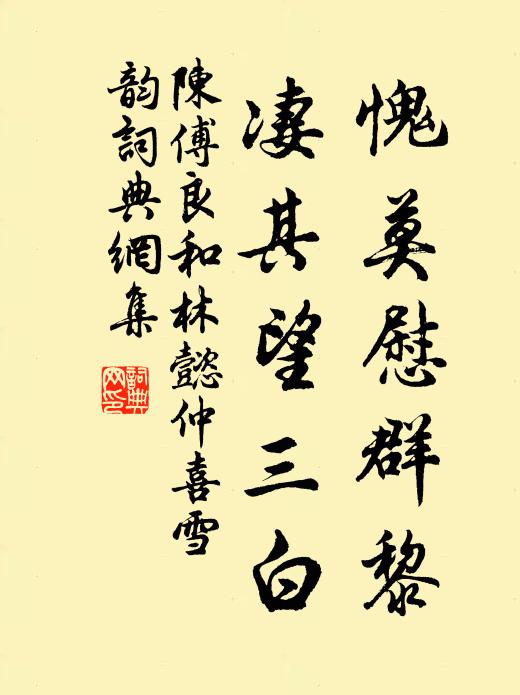 愧莫慰群黎
凄其望三白
陳傅良和林懿仲喜雪
韵詞典網集
詞典網印